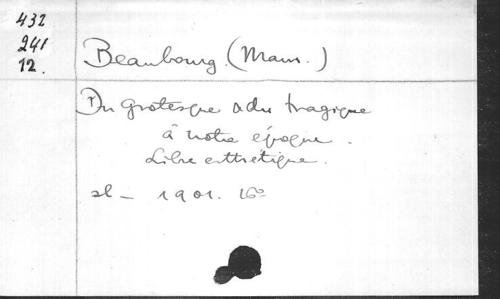 432
241
12.
Beaubourg. (Maur.)
Du grotesque & du tragique
à notre époque.
Libre esthétique.
sl – 1901. 16º